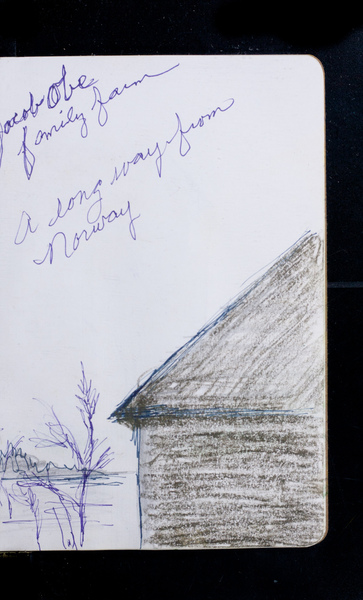 Jacob Obe
family farm
A long way from
Norway